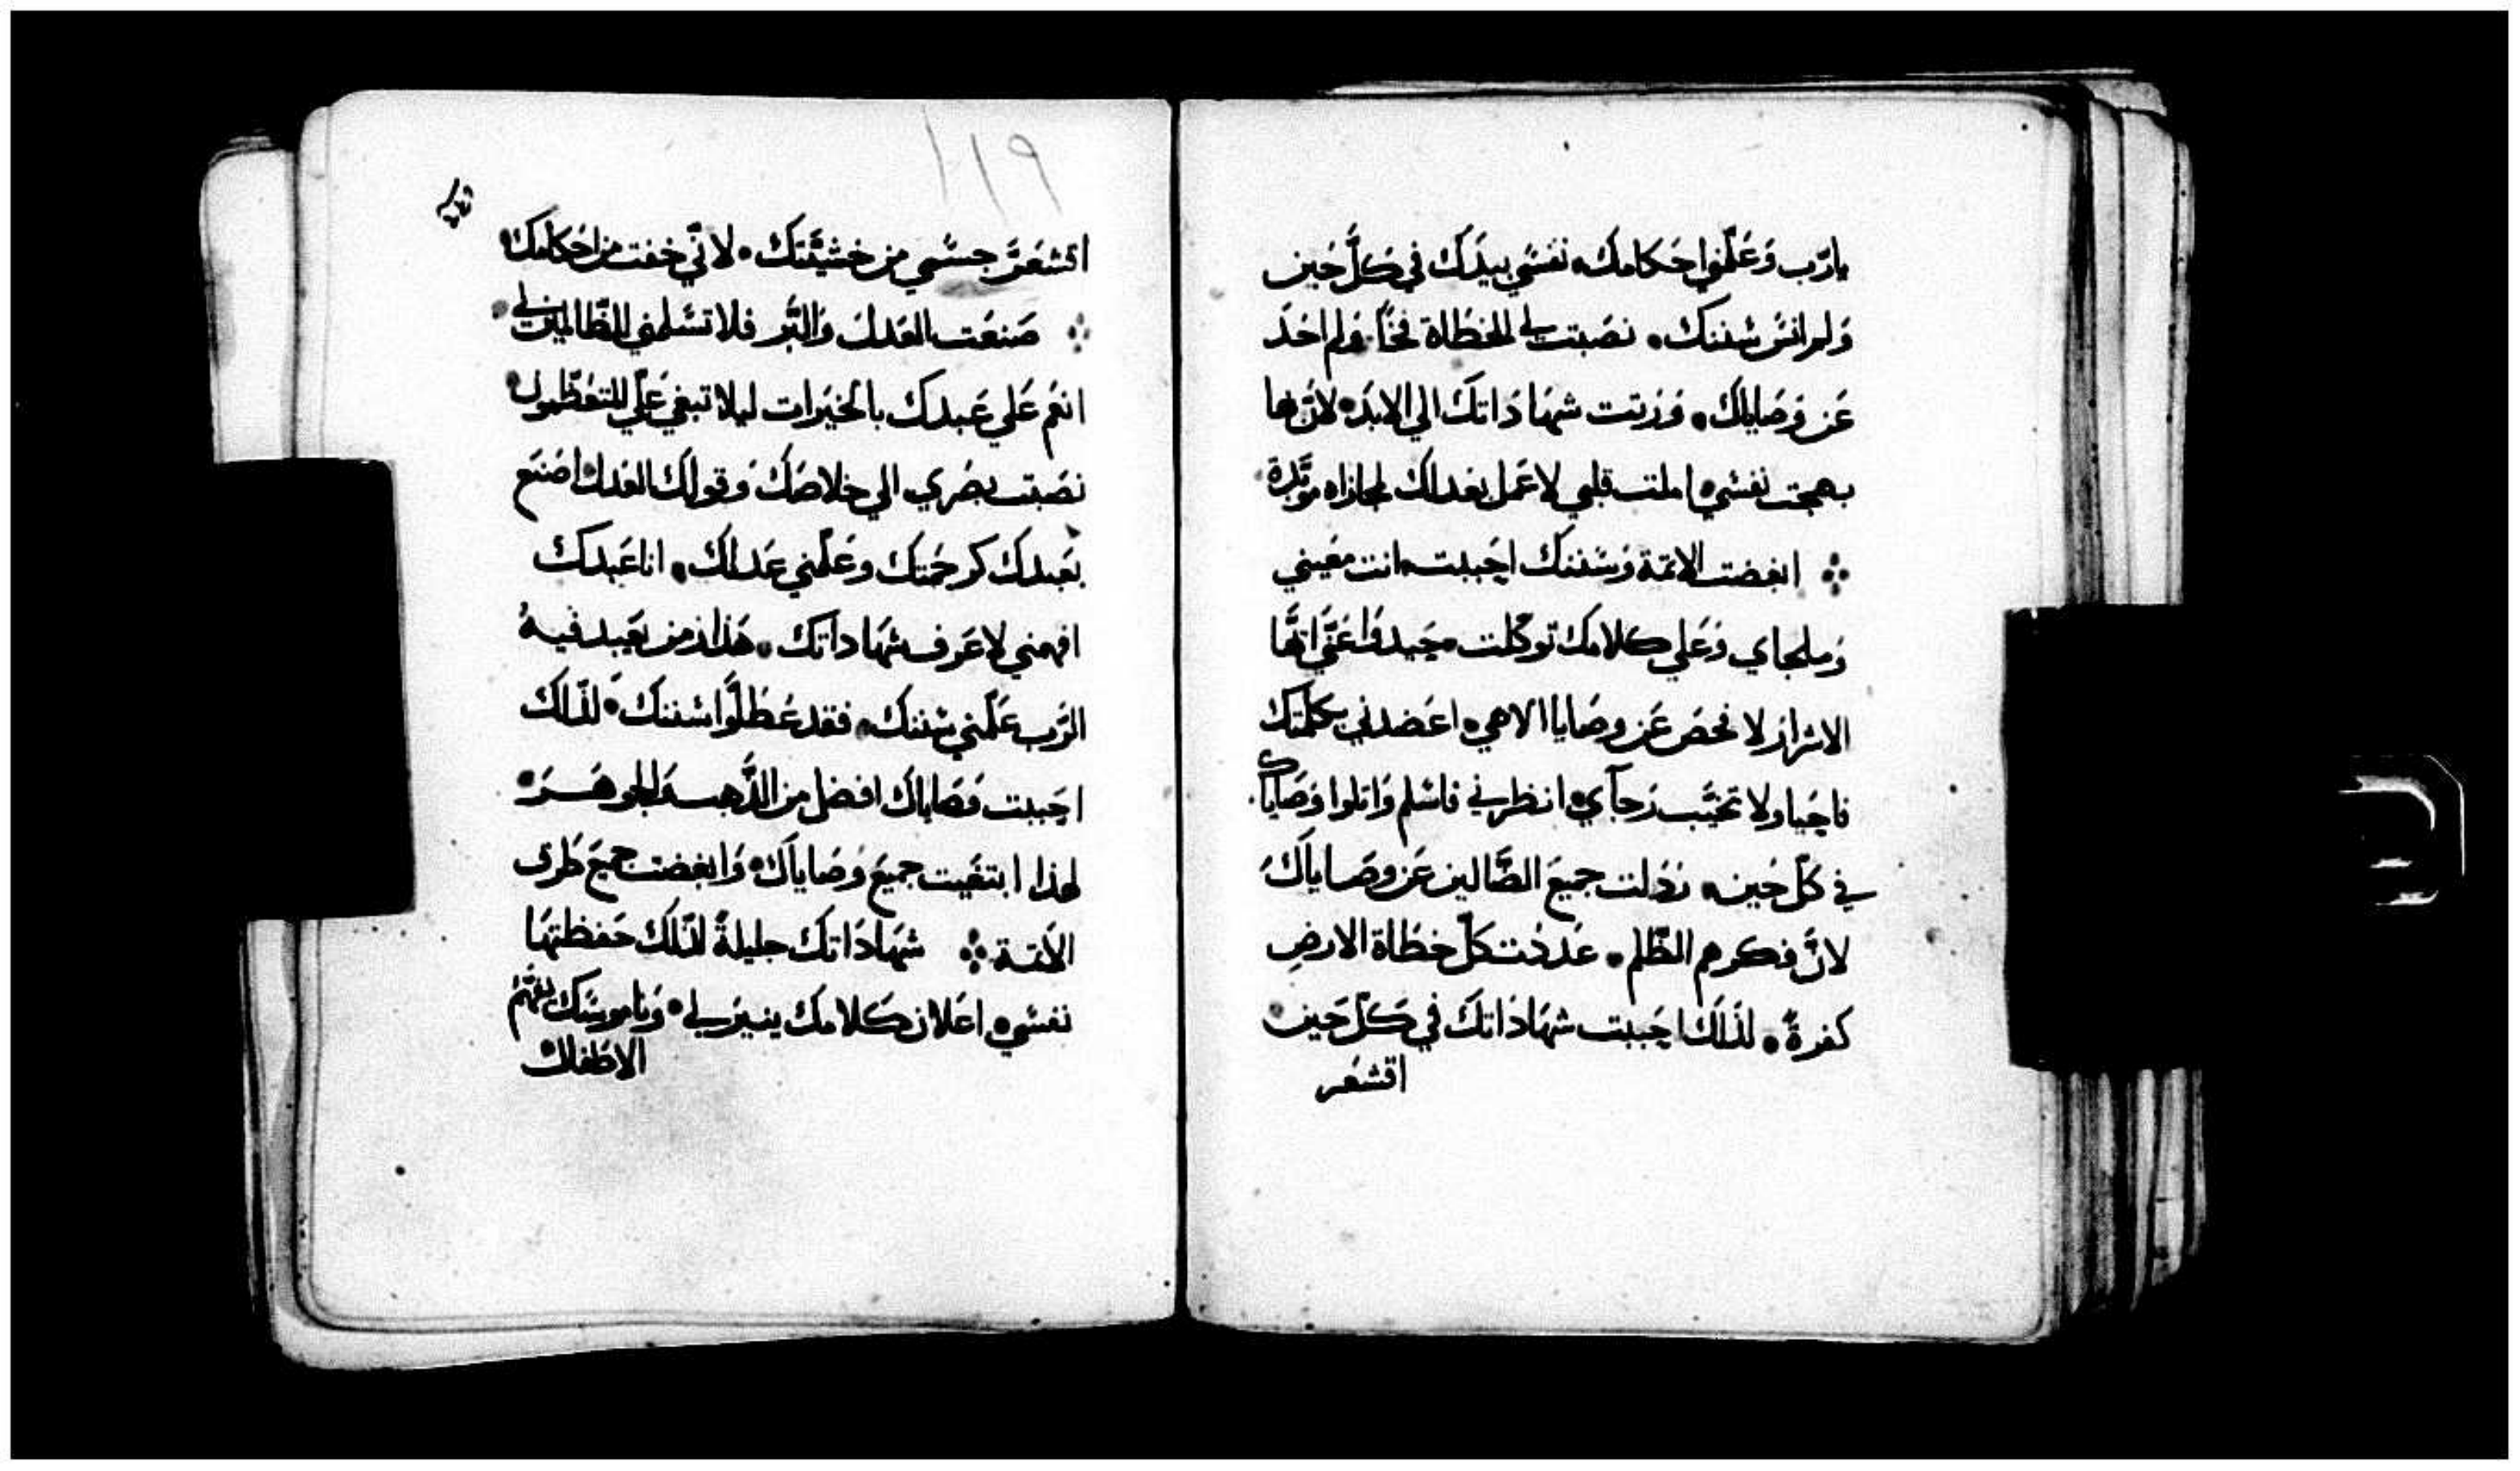 يارَّب وَعَلّمنوا حَكامك، نفسُي بيدَك في كلَّ حَين
وَلم انسَ سُننك. نصَبت لي الخطَاة فخًا وَلم احَدَ
عَن وَصَاياك. وَرثت شهَادَاتك الي الابدَ لانَّها
بهجَت نفسُي املت قلبي لاعَمل بعَدلك لمجازاه موَبّدة
ابغضت الاثمة وَسُننك احَببت انت معَيني
وَملجاي وَعَلي كلامك توكّلت حَيدوا عَنّي ايّهَا
الاشرَار لافحصَ عَن وصَايا الاهي اعَضدني بكلمتك
فاحَيا ولا تخيّب رَجآي انظرني فاسَلم وَاتلوا وَصَاياك
في كلّ حَين. رَذلت جميعَ الضَّالين عَن وصَاياكَ
لانَّ فكرهم الظّلم. عَددَت كلّ خطَاة الارضِ
كفرةً. لذَلك احَببت شهَادَاتك في كلّ حَين
اقشعَر
119
اقشعَرَّ جسَمي من خشيَّتك. لانّي خفت من احَكامك
صَنعَت العَدل وَالبّر فلا تسَلمني للظّالمين لي
انعَم عَلي عَبدك بالخيَرات ليلا تبغي عَليّ المتعَظّمون
نصَبت بصَري الي خلاصَك وَقولك العَدل اصَنعَ
بعَبدك كرحمَتك وعَلّمني عَدلك. انا عَبدك
افهمني لاعَرف شهَاداتك. هَذا زمن يعَبد فيه
الرَّب عَلّمني سُننك. فقد عَطَلّوا سُننك. لذَلك
احَببت وَصَاياك افضل من الذَّهب وَالجوهَر
لهَذا ابتغَيت جميعَ وَصَاياك. وَابغضت جميعَ طَرق
الاثمة شهَادَاتك جليلةً لذَلك حَفظتهَا
نفسَي اعَلان كلامك ينير لي. وَناموسَك يفهّم
الاطَفال